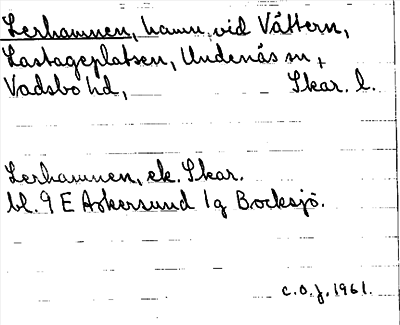 Lerhamnen, hamn, vid Vättern,
Lastageplatsen, Undenäs sn,
Vadsbo hd, Skar. l.
Lerhamnen, ek. Skar.
bl. 9 E Askersund 1g Bocksjö.
c.o.j. 1961.